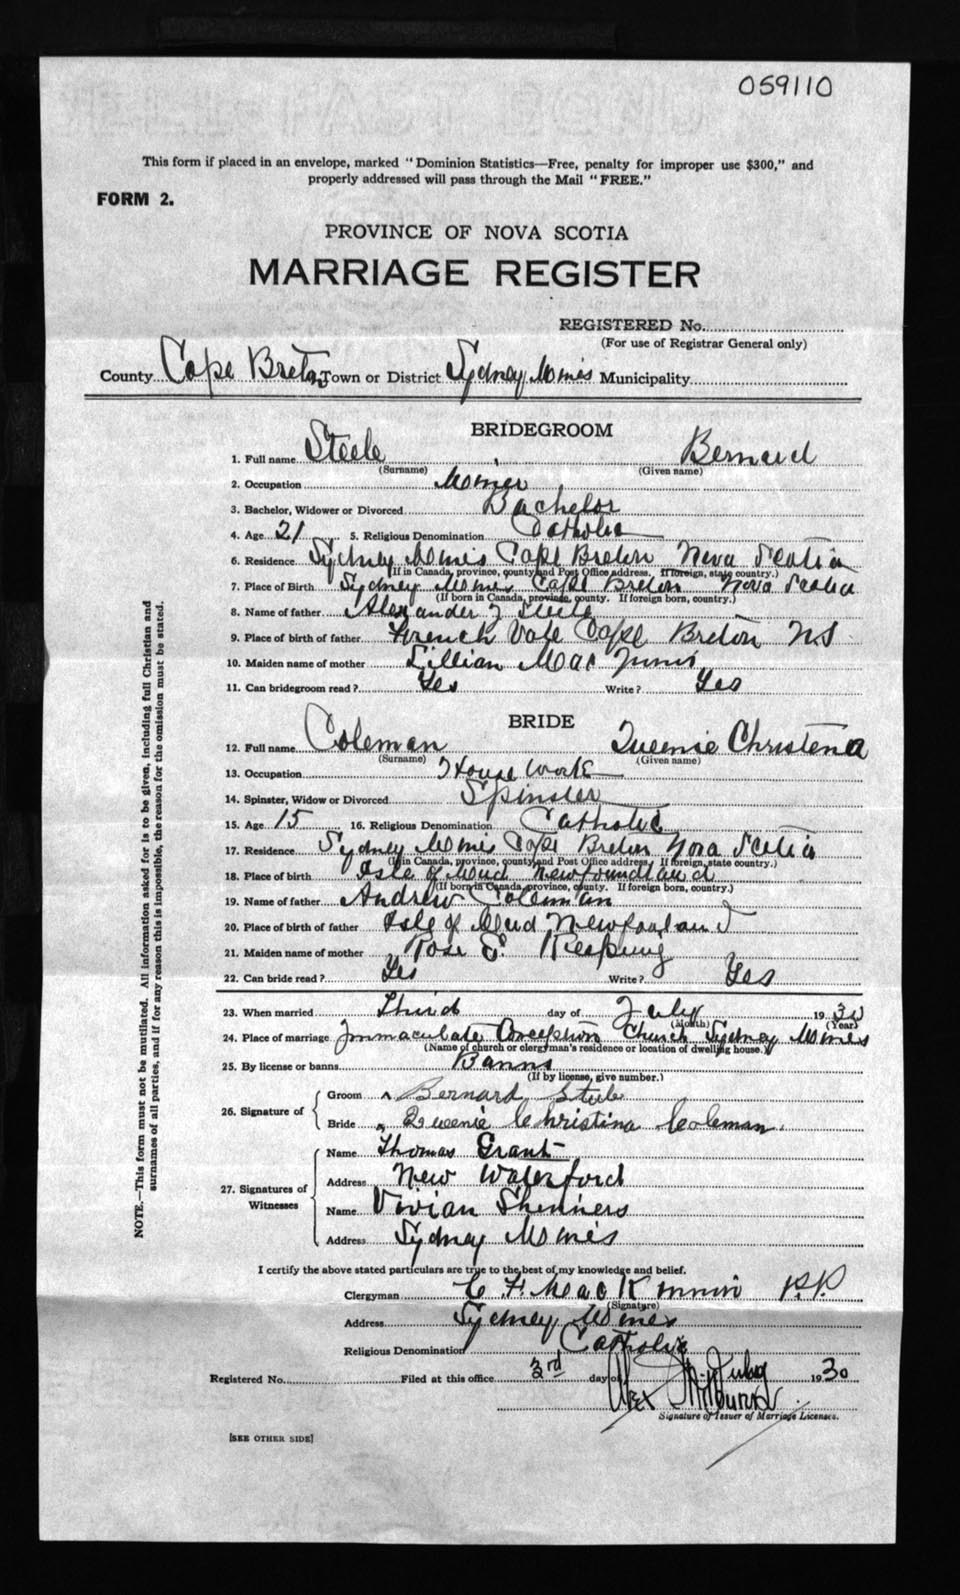 059110
This form if placed in an envelope, marked "Dominion Statistics—Free, penalty for improper use $300," and
properly addressed will pass through the Mail "FREE."
FORM 2.
PROVINCE OF NOVA SCOTIA
MARRIAGE REGISTER
REGISTERED No.
(For use of Registrar General only)
County Cape Breton Town or District Sydney Mines Municipality
BRIDEGROOM
1. Full name Steele Bernard
(Surname) (Given name)
2. Occupation Miner
3. Bachelor, Widower or Divorced Bachelor
4. Age 21 5. Religious Denomination Catholic
6. Residence Sydney Mines Cape Breton Nova Scotia
(If in Canada, province, county and Post Office address. If foreign, state country.)
7. Place of Birth Sydney Mines Cape Breton Nova Scotia
(If born in Canada, province, county. If foreign born, country.)
8. Name of father Alexander Steele
9. Place of birth of father French Vale Cape Breton N.S.
10. Maiden name of mother Lillian Mac Innis
11. Can bridegroom read? Yes Write? Yes
BRIDE
12. Full name Coleman Queenie Christena
(Surname) (Given name)
13. Occupation House Work
14. Spinster, Widow or Divorced Spinster
15. Age 15 16. Religious Denomination Catholic
17. Residence Sydney Mines Cape Breton Nova Scotia
(If in Canada, province, county and Post Office address. If foreign, state country.)
18. Place of birth Isle of Newfoundland
(If born in Canada, province, county. If foreign born, country.)
19. Name of father Andrew Coleman
20. Place of birth of father Isle of Newfoundland
21. Maiden name of mother Rose E. Keeping
22. Can bride read? Yes Write? Yes
23. When married Third day of July 1930
(Month) (Year)
24. Place of marriage Immaculate Conception Church Sydney Mines
(Name of church or clergyman's residence or location of dwelling house.)
25. By license or banns Banns
(If by license, give number.)
26. Signature of
Groom Bernard Steele
Bride Queenie Christina Coleman.
27. Signatures of Witnesses
Name Thomas Grant
Address New Waterford
Name Vivian Skinners
Address Sydney Mines
I certify the above stated particulars are true to the best of my knowledge and belief.
Clergyman C. F. MacKinnon P.P.
(Signature)
Address Sydney Mines
Religious Denomination Catholic
Registered No. Filed at this office 3rd day of July 1930
Alex
Signature of Issuer of Marriage Licenses.
[SEE OTHER SIDE]
NOTE.—This form must not be mutilated. All information asked for is to be given, including full Christian and
surnames of all parties, and if for any reason this is impossible, the reason for the omission must be stated.